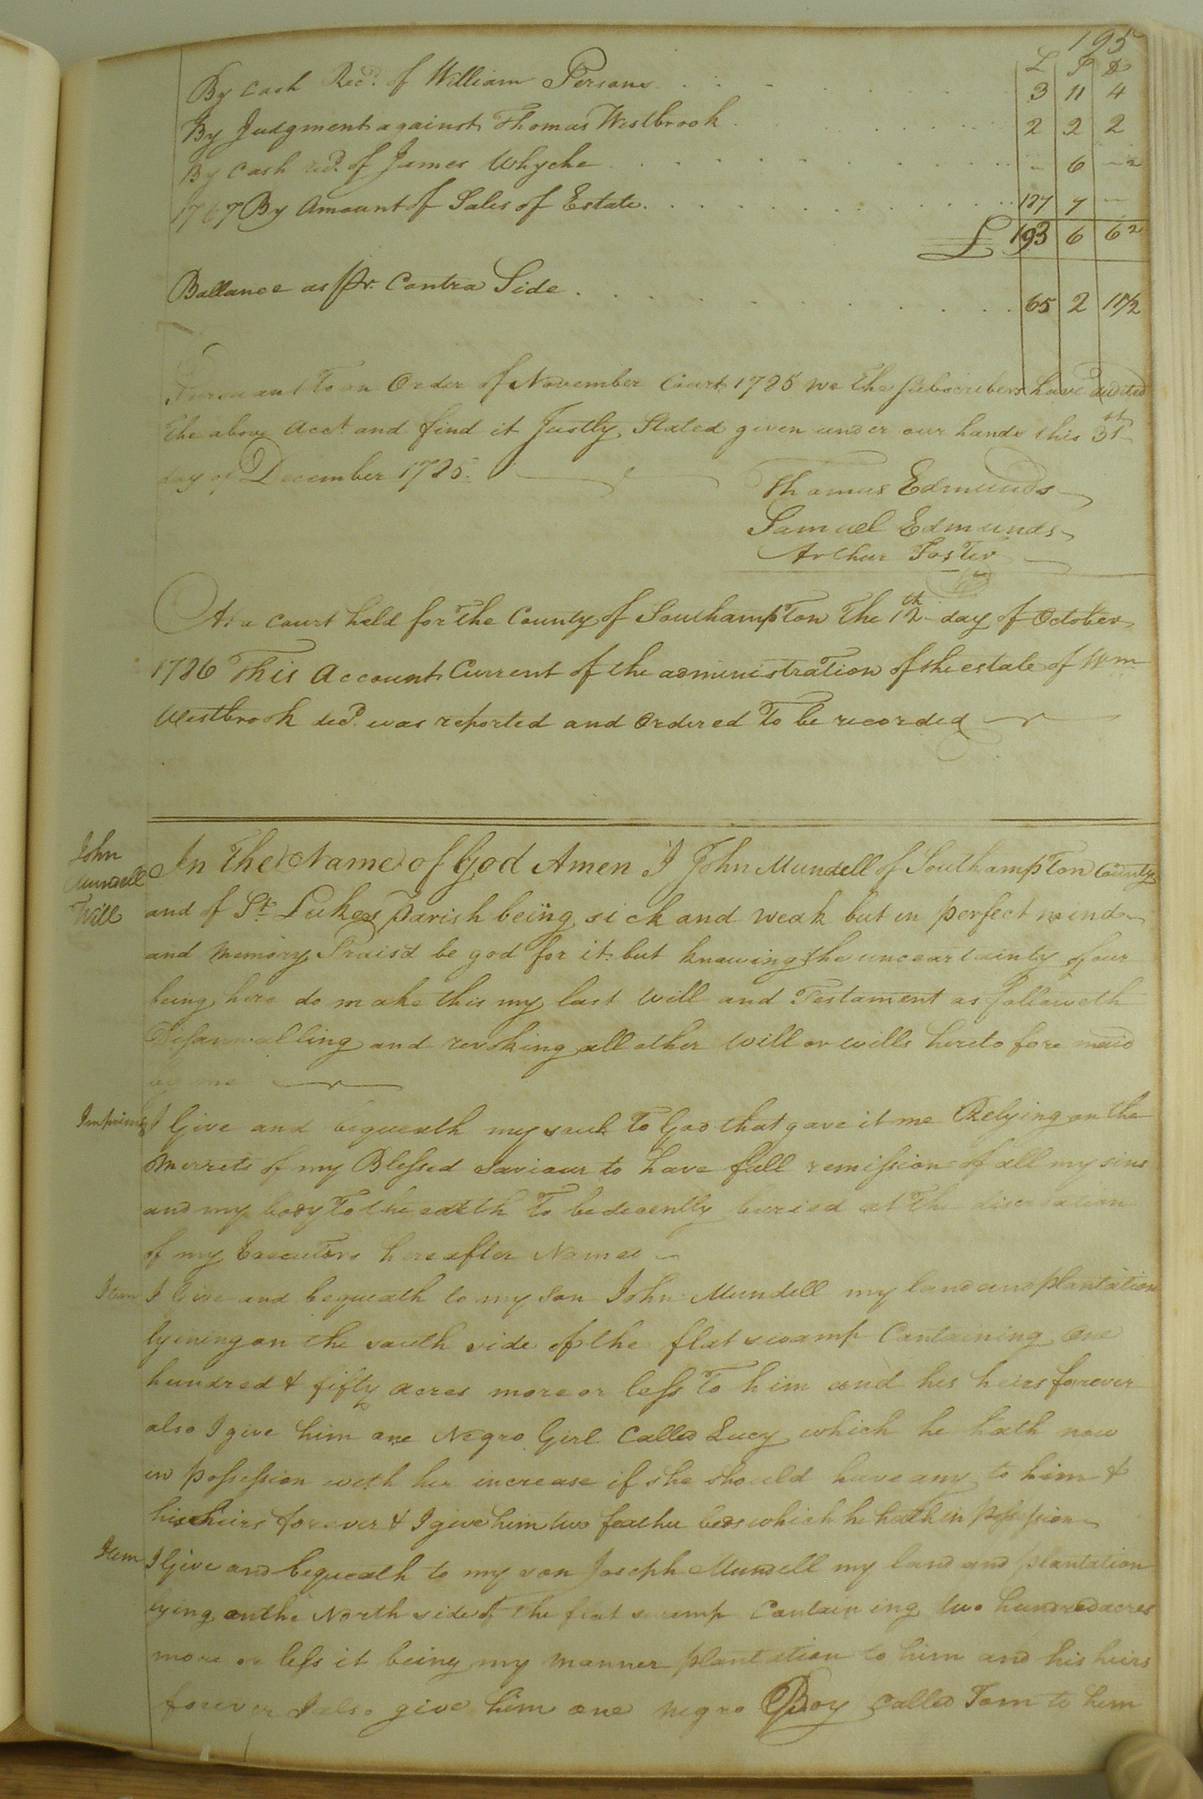 195
L S D
By Cash Rec.d of William Persons 3 11 4
By Judgment against Thomas Westbrook 2 2 2
By Cash rd. of James Whyche - 6 -
1767 By Amount of Sales of Estate 7 -
£ 193 6 6 2
Ballance as pr. Contra Side 65 2 11 1/2
Pursuant to an Order of November Court 1785 we the Subscribers have audited
the above Acct. and find it Justly Stated given under our hands this 31st
day of December 1785
Thomas Edmunds
Samuel Edmunds
Arthur Foster
At a Court held for the County of Southampton the 12th day of October
1786 This Account Current of the administration of the estate of Wm
Westbrook decd. was reported and Ordered to be recorded
John
Mundell
Will
In the Name of God Amen I John Mundell of Southampton County
and of St. Lukes Parish being sick and weak but in perfect mind
and memory Praisd be god for it but knowing the unceartainty of our
being here do make this my last Will and Testament as followeth
Disannulling and revoking all other Will or wills hereto fore maid
by me
Imprimis I Give and bequeath my soul to God that gave it me Relying on the
Merrets of my Blessed Saviour to have full remission of all my sins
and my body to the earth to be decently buried at the discreation
of my Executors hereafter Named
Item I Give and bequeath to my Son John Mundell my land and plantation
lyeing on the south side of the flat swamp Containing One
hundred & fifty acres more or less to him and his heirs forever
also I give him one Negro Girl Called Lucy which he hath now
in possession with her increase if she should have any to him &
his heirs forever & I give him two feather beds which he hath in possession
Item I Give and bequeath to my son Joseph Mundell my land and plantation
lying on the North side of the flat swamp Containing two hundred acres
more or less it being my manner plantation to him and his heirs
forever I also give him one negro Boy Called Tom to him